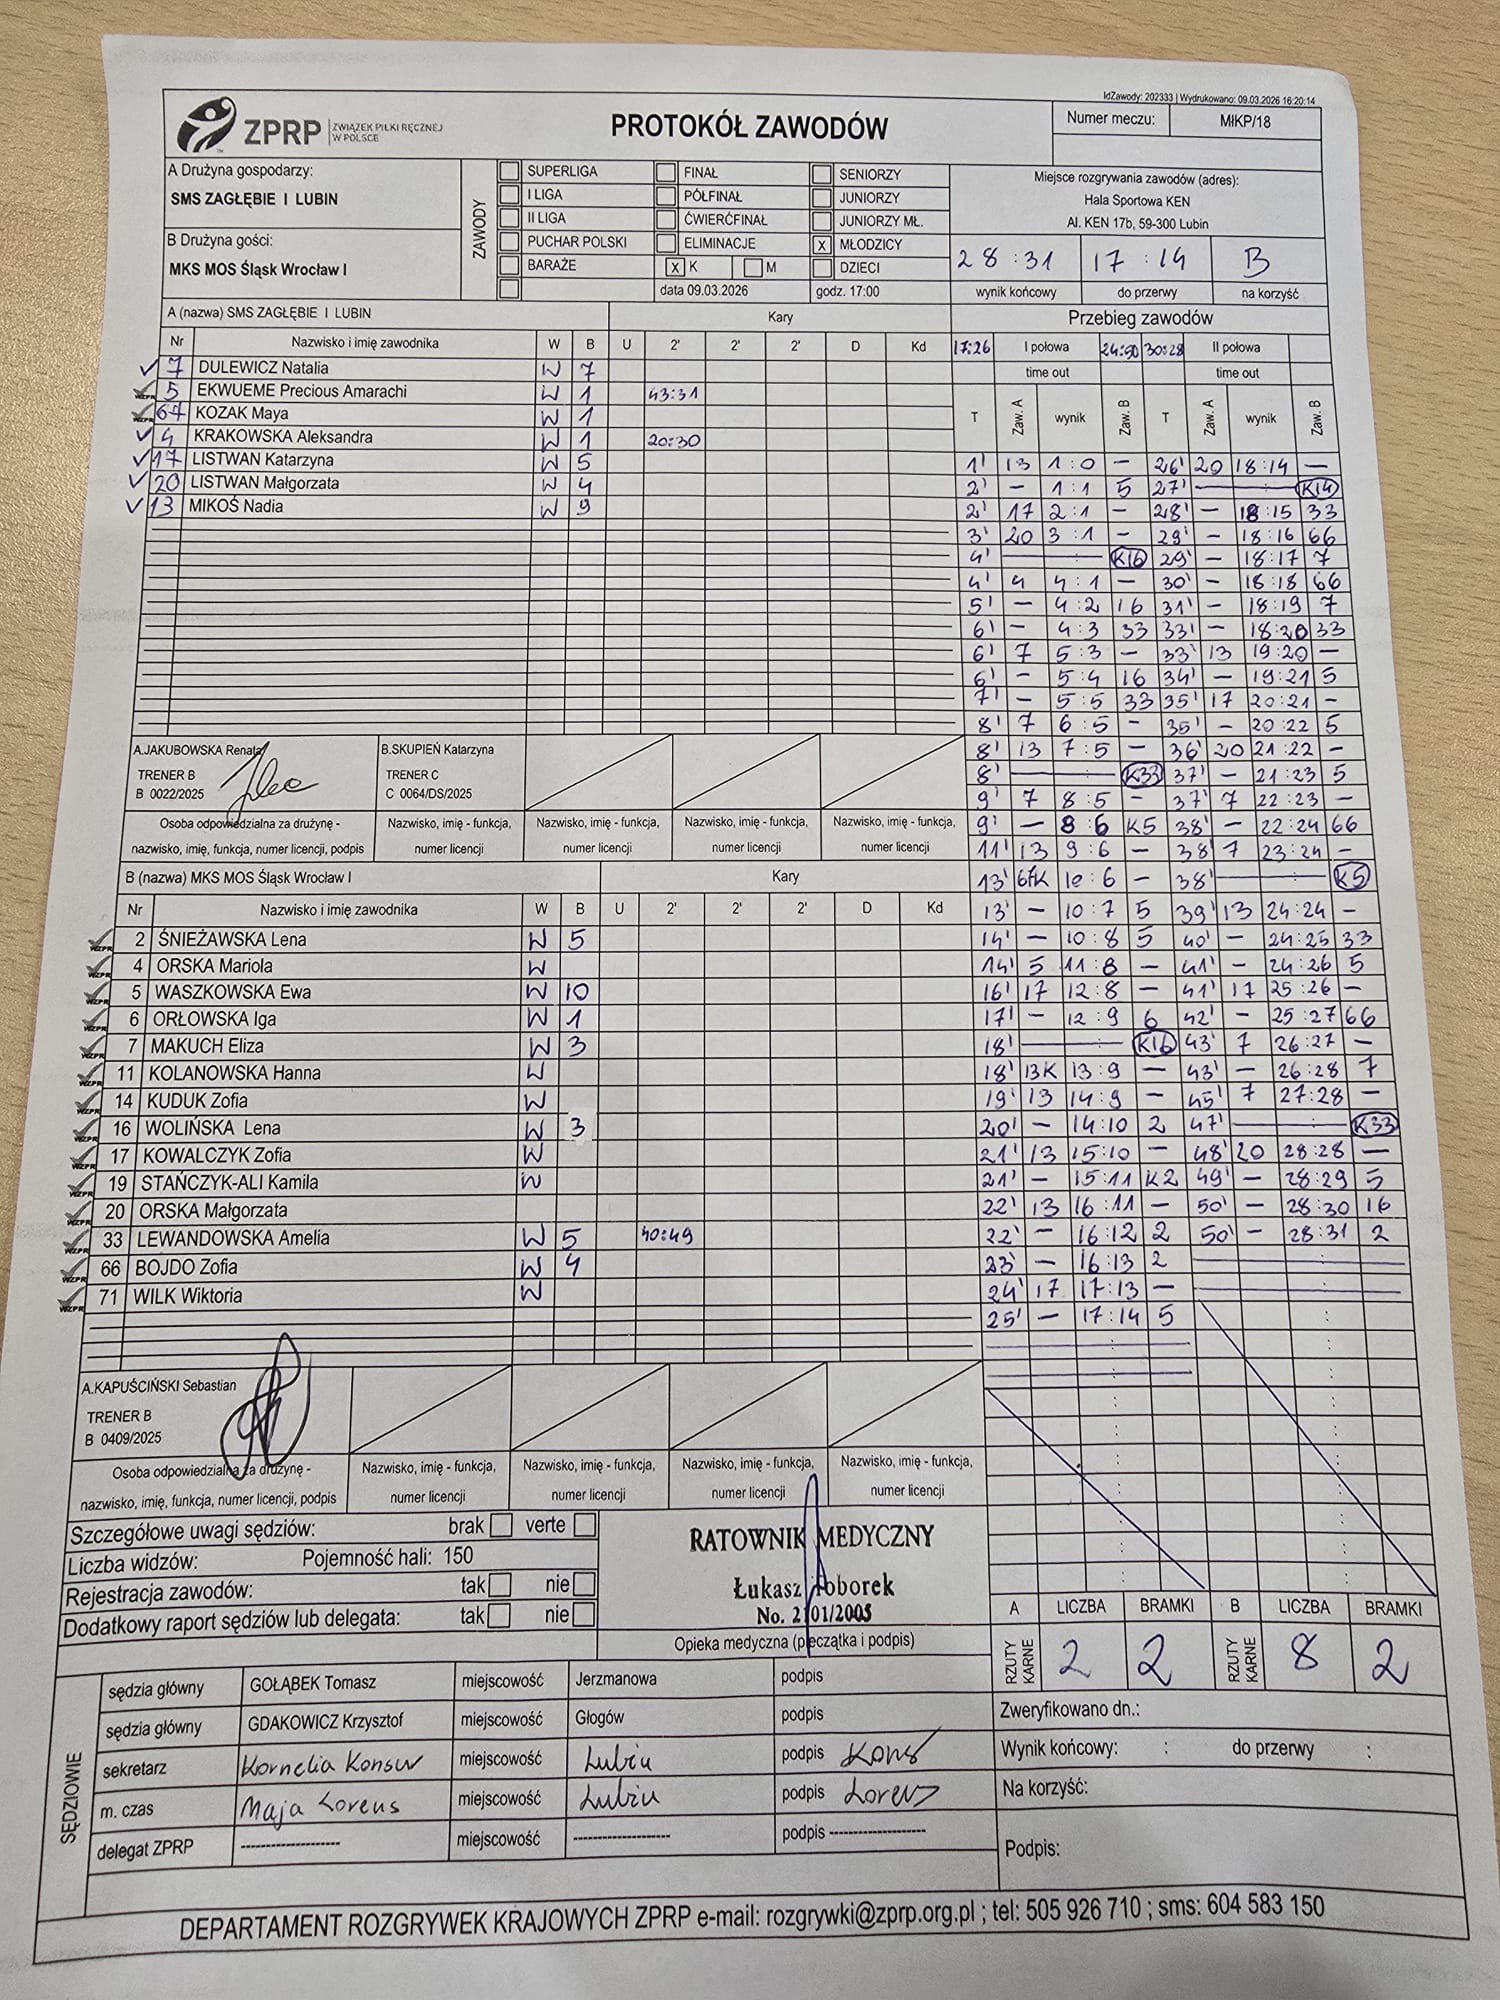 IdZawody: 202333 | Wydrukowano: 09.03.2026 16:20:14
ZPRP ZWIĄZEK PIŁKI RĘCZNEJ W POLSCE
PROTOKÓŁ ZAWODÓW
Numer meczu: MłKP/18
A Drużyna gospodarzy:
SMS ZAGŁĘBIE I LUBIN
B Drużyna gości:
MKS MOS Śląsk Wrocław I
ZAWODY
SUPERLIGA FINAŁ SENIORZY
I LIGA PÓŁFINAŁ JUNIORZY
II LIGA ĆWIERĆFINAŁ JUNIORZY MŁ.
PUCHAR POLSKI ELIMINACJE x MŁODZICY
BARAŻE x K M DZIECI
data 09.03.2026 godz. 17:00
Miejsce rozgrywania zawodów (adres):
Hala Sportowa KEN
Al. KEN 17b, 59-300 Lubin
28:31 17:14 B
wynik końcowy do przerwy na korzyść
A (nazwa) SMS ZAGŁĘBIE I LUBIN Kary
Nr Nazwisko i imię zawodnika W B U 2' 2' 2' D Kd
7 DULEWICZ Natalia W 7
5 EKWUEME Precious Amarachi W 1 43:31
67 KOZAK Maya W 1
4 KRAKOWSKA Aleksandra W 1 20:30
17 LISTWAN Katarzyna W 5
20 LISTWAN Małgorzata W 4
13 MIKOŚ Nadia W 9
A.JAKUBOWSKA Renata
TRENER B
B 0022/2025
B.SKUPIEŃ Katarzyna
TRENER C
C 0064/DS/2025
Osoba odpowiedzialna za drużynę - Nazwisko, imię - funkcja, Nazwisko, imię - funkcja, Nazwisko, imię - funkcja, Nazwisko, imię - funkcja,
nazwisko, imię, funkcja, numer licencji, podpis numer licencji numer licencji numer licencji numer licencji
B (nazwa) MKS MOS Śląsk Wrocław I Kary
Nr Nazwisko i imię zawodnika W B U 2' 2' 2' D Kd
2 ŚNIEŻAWSKA Lena W 5
4 ORSKA Mariola W
5 WASZKOWSKA Ewa W 10
6 ORŁOWSKA Iga W 1
7 MAKUCH Eliza W 3
11 KOLANOWSKA Hanna W
14 KUDUK Zofia W
16 WOLIŃSKA Lena W 3
17 KOWALCZYK Zofia W
19 STAŃCZYK-ALI Kamila W
20 ORSKA Małgorzata
33 LEWANDOWSKA Amelia W 5 40:49
66 BOJDO Zofia W 4
71 WILK Wiktoria W
A.KAPUŚCIŃSKI Sebastian
TRENER B
B 0409/2025
Osoba odpowiedzialna za drużynę - Nazwisko, imię - funkcja, Nazwisko, imię - funkcja, Nazwisko, imię - funkcja, Nazwisko, imię - funkcja,
nazwisko, imię, funkcja, numer licencji, podpis numer licencji numer licencji numer licencji numer licencji
Przebieg zawodów
17:26 I połowa 24:50 30:28 II połowa
time out time out
T Zaw. A wynik Zaw. B T Zaw. A wynik Zaw. B
1' 13 1:0 — 26' 20 18:14 —
2' — 1:1 5 27' — : — K14
2' 17 2:1 — 28' — 18:15 33
3' 20 3:1 — 28' — 18:16 66
4' — : — K16 29' — 18:17 7
4' 4 4:1 — 30' — 18:18 66
5' — 4:2 16 31' — 18:19 7
6' — 4:3 33 33' — 18:20 33
6' 7 5:3 — 33' 13 19:20 —
6' — 5:4 16 34' — 19:21 5
7' — 5:5 33 35' 17 20:21 —
8' 7 6:5 — 35' — 20:22 5
8' 13 7:5 — 36' 20 21:22 —
8' — : — K33 37' — 21:23 5
9' 7 8:5 — 37' 7 22:23 —
9' — 8:6 K5 38' — 22:24 66
11' 13 9:6 — 38' 7 23:24 —
13' 67K 10:6 — 38' — : — K5
13' — 10:7 5 39' 13 24:24 —
14' — 10:8 5 40' — 24:25 33
14' 5 11:8 — 41' — 24:26 5
16' 17 12:8 — 41' 17 25:26 —
17' — 12:9 6 42' — 25:27 66
18' — : — K16 43' 7 26:27 —
18' 13K 13:9 — 43' — 26:28 7
19' 13 14:9 — 45' 7 27:28 —
20' — 14:10 2 47' — : — K33
21' 13 15:10 — 48' 20 28:28 —
21' — 15:11 K2 49' — 28:29 5
22' 13 16:11 — 50' — 28:30 16
22' — 16:12 2 50' — 28:31 2
23' — 16:13 2
24' 17 17:13 —
25' — 17:14 5
Szczegółowe uwagi sędziów: brak verte
Liczba widzów: Pojemność hali: 150
Rejestracja zawodów: tak nie
Dodatkowy raport sędziów lub delegata: tak nie
RATOWNIK MEDYCZNY
Łukasz
No. 2101/2005
Opieka medyczna (pieczątka i podpis)
A LICZBA BRAMKI B LICZBA BRAMKI
RZUTY KARNE 2 2 RZUTY KARNE 8 2
SĘDZIOWIE
sędzia główny GOŁĄBEK Tomasz miejscowość Jerzmanowa podpis
sędzia główny GDAKOWICZ Krzysztof miejscowość Głogów podpis
sekretarz Kornelia Konsur miejscowość Lubin podpis Kons
m. czas Maja Lorens miejscowość Lubin podpis Lorens
delegat ZPRP -------------------- miejscowość -------------------- podpis --------------------
Zweryfikowano dn.:
Wynik końcowy: : do przerwy :
Na korzyść:
Podpis:
DEPARTAMENT ROZGRYWEK KRAJOWYCH ZPRP e-mail: rozgrywki@zprp.org.pl ; tel: 505 926 710 ; sms: 604 583 150